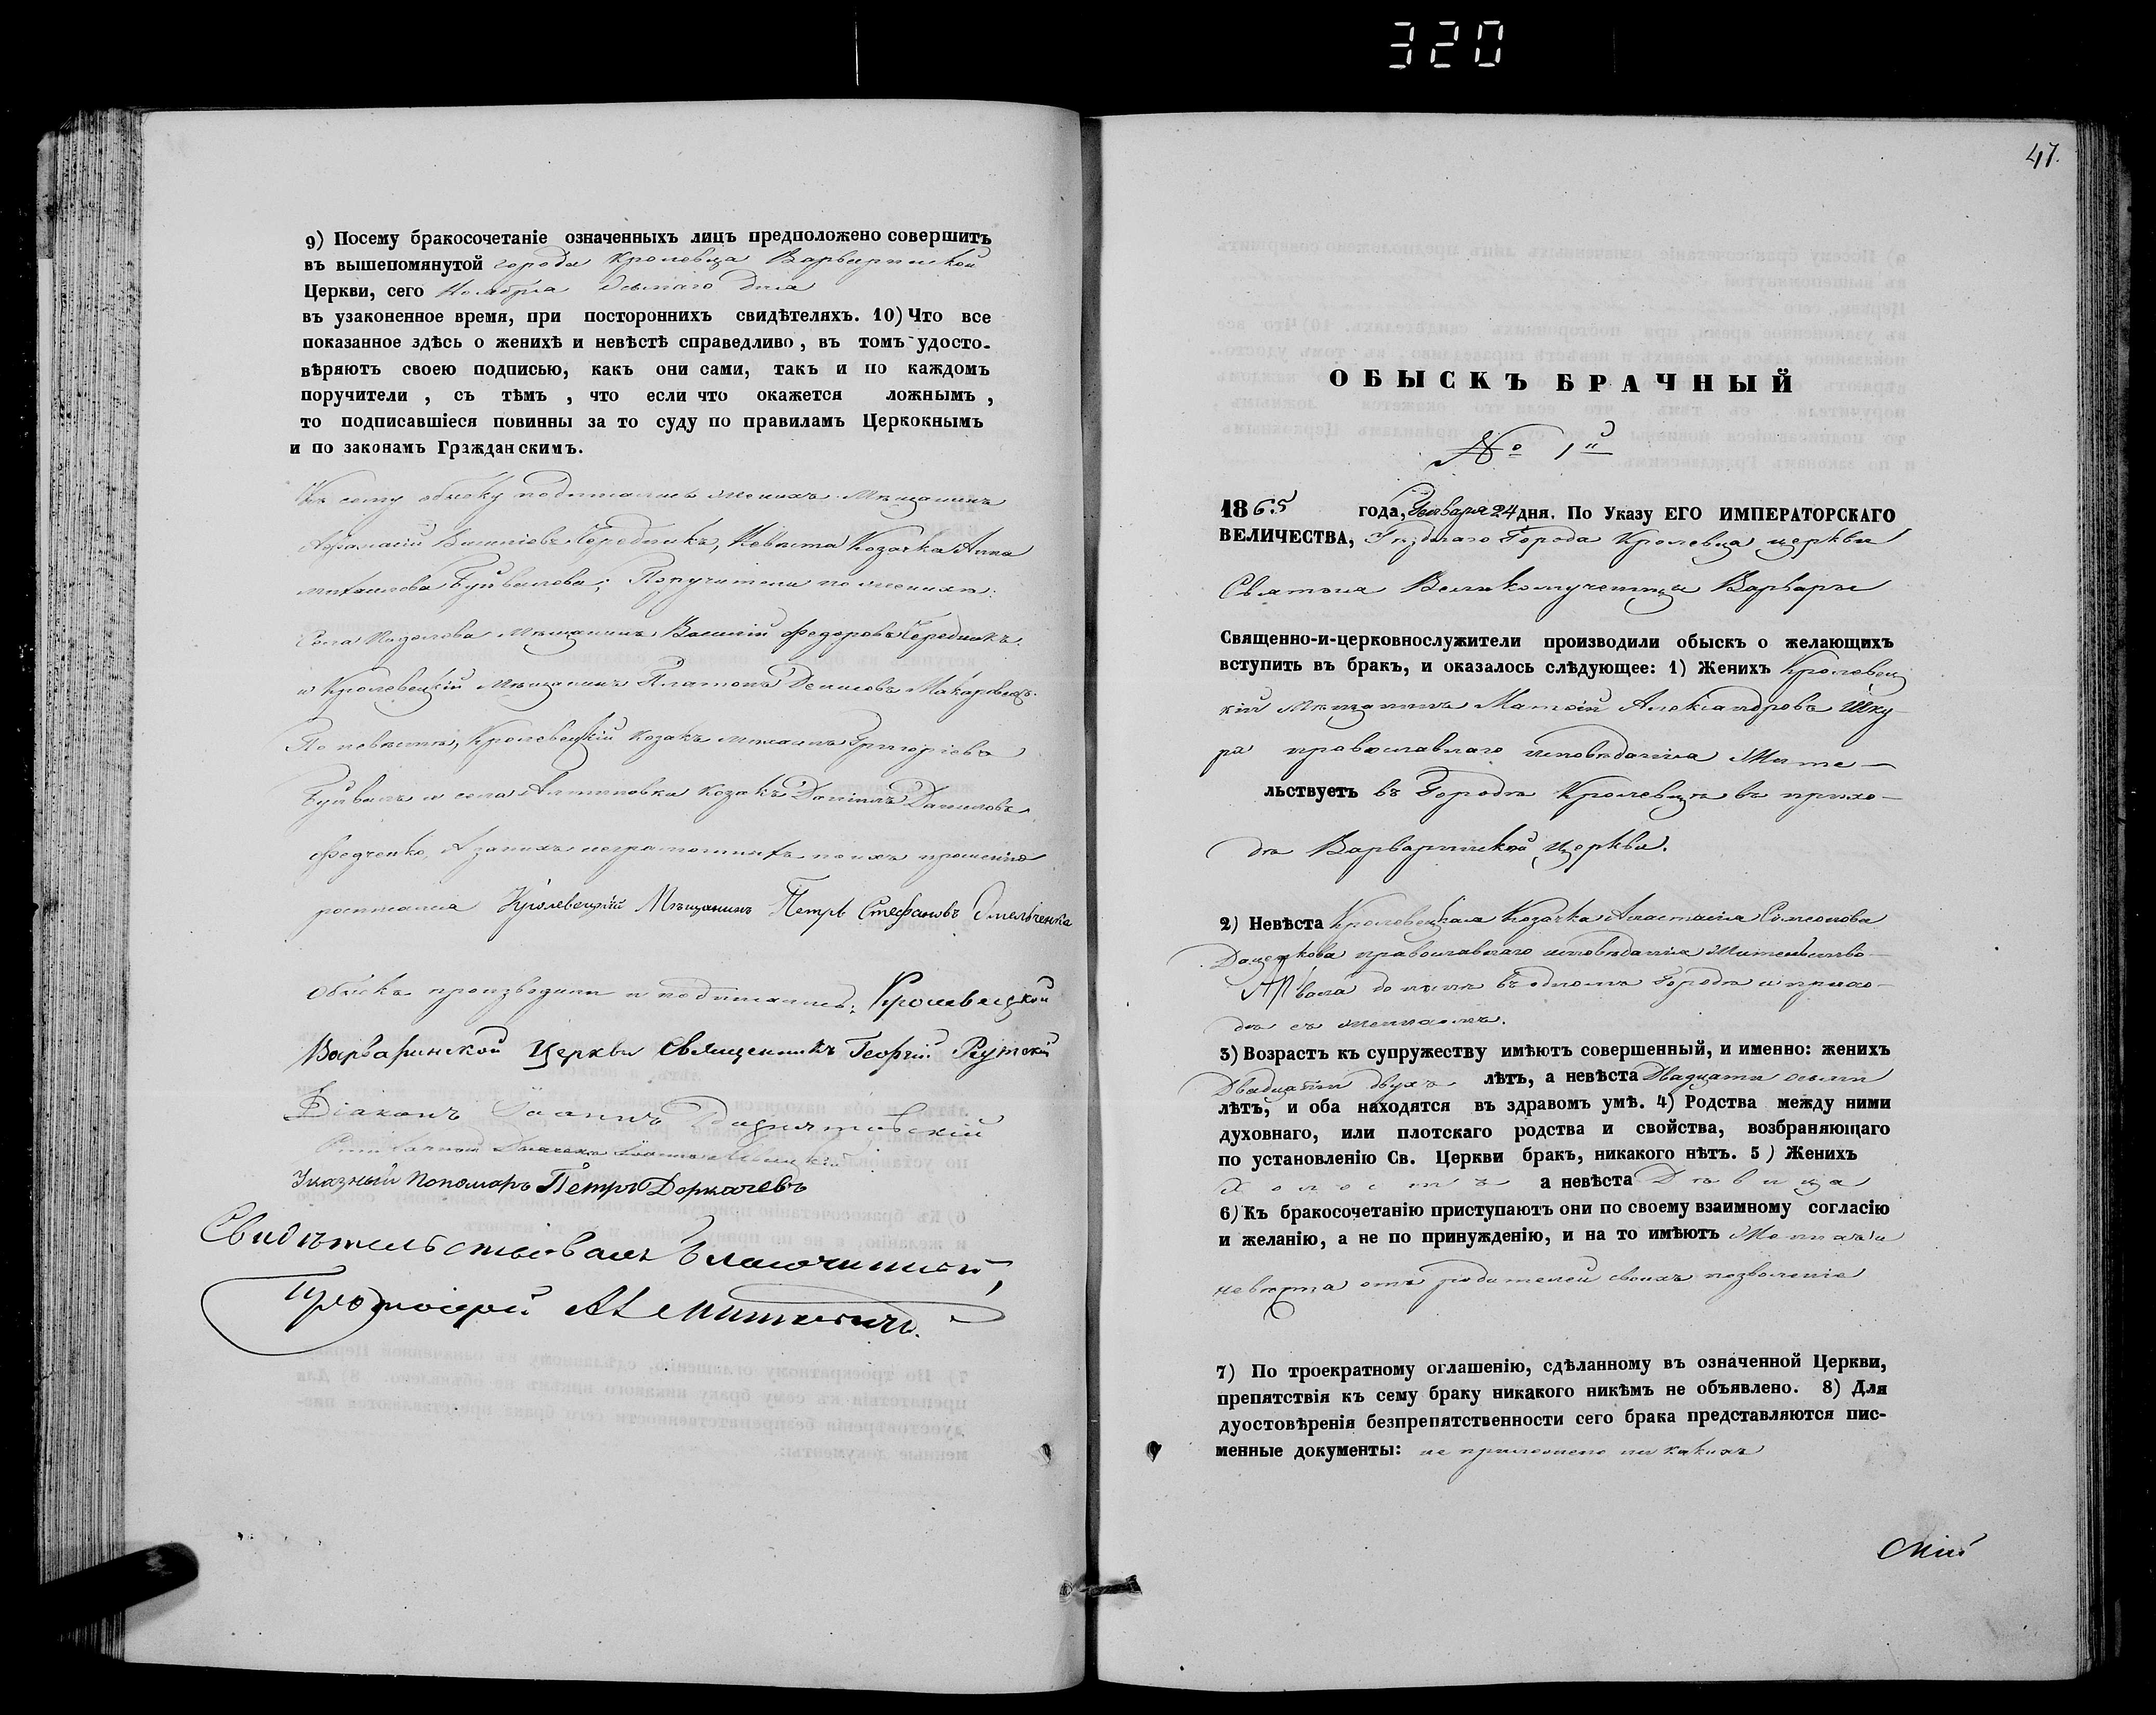 320
9) Посему бракосочетаніе означенныхъ лицъ предположено совершить
въ вышепомянутой города Кролевца Варваринской
Церкви, сего Ноября дня
въ узаконенное время, при постороннихъ свидѣтеляхъ. 10) Что все
показанное здѣсь о женихѣ и невѣстѣ справедливо, въ томъ удосто-
вѣряютъ своею подписью, какъ они сами, такъ и по каждомъ
поручители, съ тѣмъ, что если что окажется ложнымъ,
то подписавшіеся повинны за то суду по правиламъ Церкокнымъ
и по законамъ Гражданскимъ.
Къ сему обыску подписались женихъ Мѣщанинъ
Чередникъ, Невѣста Козачка Анна
Михаилова Буйвалова; Поручители по женихѣ:
Села Мѣщанинъ Василій Федоровъ Чередникъ
и Кролевецкій Мѣщанинъ Платонъ Денисовъ
По невѣстѣ, Кролевецкій Козакъ Михаилъ Григоріевъ
Буйвалъ и села Алтиновки Козакъ Даніилъ Даниловъ
Федченко, А за нихъ неграмотныхъ по ихъ прошенію
росписался Кролевецкій Мѣщанинъ Петръ Стефановъ Омельченко
Обыскъ производили и подписались: Кролевецкой
Варваринской Церкви Священникъ Георгій Рутскій
Діаконъ Іоаннъ
Указный Пономарь Петръ Деркачевъ
Свидѣтельствовалъ Благочинный,
Протоіерей
47.
ОБЫСКЪ БРАЧНЫЙ
№ 1й
1865 года, Января 24 дня. По Указу ЕГО ИМПЕРАТОРСКАГО
ВЕЛИЧЕСТВА, Уѣзднаго Города Кролевца церкви
Святыя Великомученицы Варвары
Священно-и-церковнослужители производили обыскъ о желающихъ
вступить въ бракъ, и оказалось слѣдующее: 1) Женихъ Кролевец
кій Мѣщанинъ Матѳій Александровъ Шку
ра православнаго исповѣданія Жите—
льствуетъ въ Городѣ Кролевцѣ въ прихо—
дѣ Варваринской Церкви.
2) Невѣста Кролевецкая Козачка Анастасія Симеонова
Даценкова православнаго исповѣданія Жительство—
вала до нынѣ въ одномъ Городѣ и прихо—
дѣ съ женихомъ.
3) Возрастъ къ супружеству имѣютъ совершенный, и именно: женихъ
Двадцати двухъ лѣтъ, а невѣста Двадцати осьми
лѣтъ, и оба находятся въ здравомъ умѣ. 4) Родства между ними
духовнаго, или плотскаго родства и свойства, возбраняющаго
по установленію Св. Церкви бракъ, никакого нѣтъ. 5) Женихъ
Холостъ а невѣста Дѣвица
6) Къ бракосочетанію приступаютъ они по своему взаимному согласію
и желанію, а не по принужденію, и на то имѣютъ Женихъ и
невѣста отъ родителей своихъ позволеніе
7) По троекратному оглашенію, сдѣланному въ означенной Церкви,
препятствія къ сему браку никакого никѣмъ не объявлено. 8) Для
дуостовѣренія безпрепятственности сего брака представляются пис-
менные документы: не приложено ни какихъ